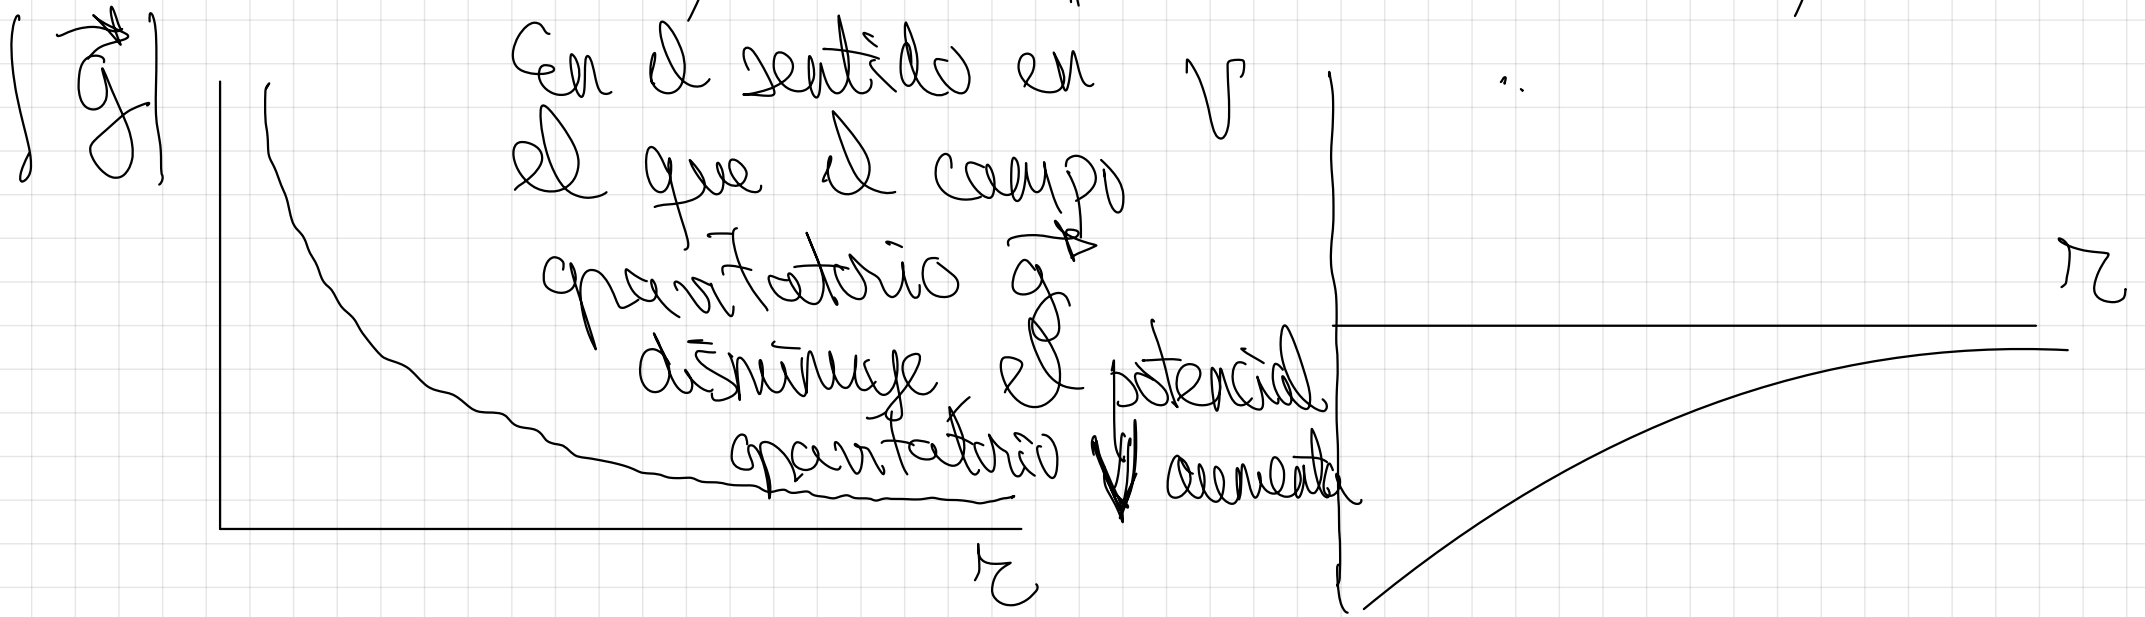 |g⃗|
En el sentido en
el que el campo
gravitatorio g⃗
disminuye el potencial
gravitatorio V aumenta
r
V
r